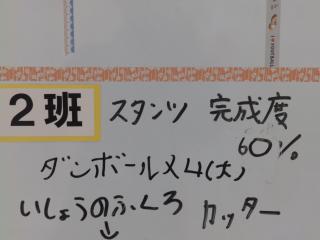 2班 スタンツ 完成度
60%
ダンボール×4(大)
いしょうのふくろ カッター
↓